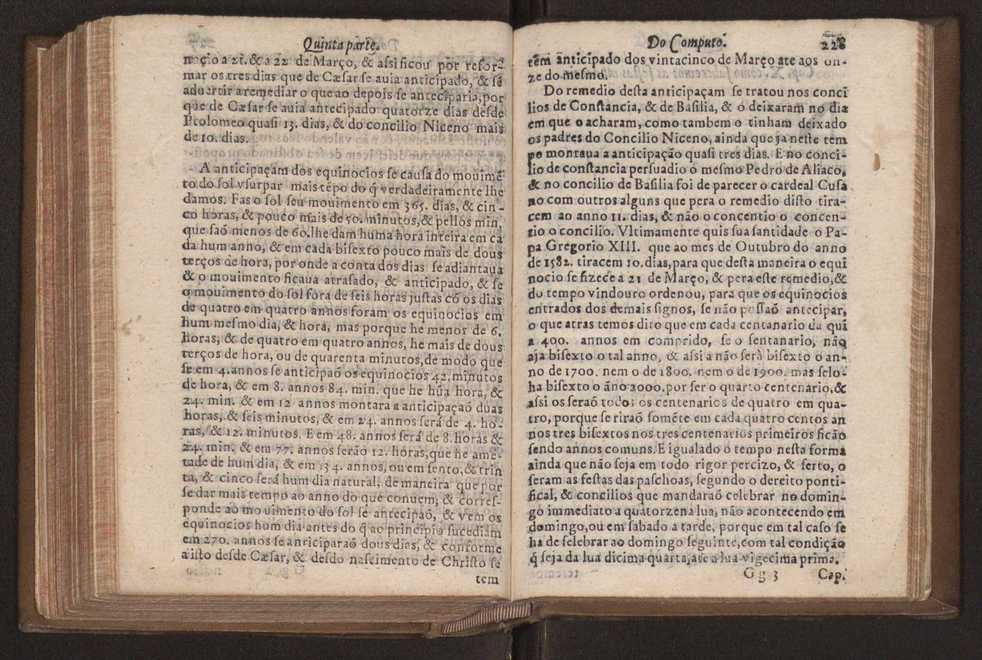 Quinta parte.
nacio a 21. & a 22 de Março, & assi ficou por refor-
mar os tres dias que de Cæsar se auia anticipado, & sē
aduertir a remediar o que ao depois se anteciparia, por
que de Cæsar se auia antecipado quatorze dias desde
Ptolomeo quasi 13. dias, & do concilio Niceno mais
de 10. dias.
A anticipaçam dos equinocios se causa do mouimē
to do sol vsurpar mais tēpo do q̃ verdadeiramente lhe
damos. Fas o sol seu mouimento em 365. dias, & cin-
co horas, & pouco mais de 50. minutos, & pellos min,
que saõ menos de 60. lhe dam huma hora inteira em ca
da hum anno, & em cada bisexto pouco mais de dous
terços de hora, por onde a conta dos dias se adiantaua
& o mouimento ficaua atrasado, & anticipado, & se
o mouimento do sol fora de seis horas justas cō os dias
de quatro em quatro annos foram os equinocios em
hum mesmo dia, & hora, mas porque he menor de 6.
horas, & de quatro em quatro annos, he mais de dous
terços de hora, ou de quarenta minutos, de modo que
se em 4. annos se anticipaõ os equinocios 42. minutos
de hora, & em 8. annos 84. min. que he hũa hora, &
24. min. & em 12 annos montara a anticipaçaõ duas
horas, & seis minutos, & em 24. annos será de 4. ho-
ras, & 12. minutos. E em 48. annos será de 8. horas &
24. min. & em 77. annos serão 12. horas, que he ame-
tade de hum dia, & em 134. annos, ou em sento, & trin
ta, & cinco será hum dia natural, de maneira que por
se dar mais tempo ao anno do que conuem, & corres-
ponde ao mouimento do sol se antecipaõ, & vem os
equinocios hum dia antes do q̃ ao principio sucediam
em 270. annos se anticiparaõ dous dias, & conforme
a isto desde Cæsar, & desdo nascimento de Christo se
tem
Do Computo.
228
tēm anticipado dos vintacinco de Março ate aos on-
ze do mesmo.
Do remedio desta anticipaçam se tratou nos conci
lios de Constancia, & de Basilia, & o deixaram no dia
em que o acharam, como tambem o tinham deixado
os padres do Concilio Niceno, ainda que ja neste tem
po montaua a anticipação quasi tres dias. E no conci-
lio de constancia persuadio o mesmo Pedro de Aliaco,
& no concilio de Basilia foi de parecer o cardeal Cusa
no com outros alguns que pera o remedio disto tira-
cem ao anno 11. dias, & não o concentio o concen-
tio o concilio. Vltimamente quis sua santidade o Pa-
pa Gregorio XIII. que ao mes de Outubro do anno
de 1582. tiracem 10. dias, para que desta maneira o equi
nocio se fizece a 21 de Março, & pera este remedio, &
do tempo vindouro ordenou, para que os equinocios
entrados dos demais signos, se não possaõ antecipar,
o que atras temos dito que em cada centanario da qui
a 400. annos em comprido, se o sentanario, não
aja bisexto o tal anno, & assi a não será bisexto o an-
no de 1700. nem o de 1800. nem o de 1900. mas selo-
ha bisexto o āno 2000. por ser o quarto centenario, &
assi os seraõ todos os centenarios de quatro em qua-
tro, porque se tiraõ somēte em cada quatro centos an
nos tres bisextos nos tres centenarios primeiros ficão
sendo annos comuns. E igualado o tempo nesta forma
ainda que não seja em todo rigor percizo, & serto, o
seram as festas das paschoas, segundo o dereito ponti-
fical, & concilios que mandaraõ celebrar no domin-
go immediato a quatorzena lua, não acontecendo em
domingo, ou em sabado a tarde, porque em tal caso se
ha de selebrar ao domingo seguinte, com tal condição
q̃ seja da lua dicima quarta, ate a lua vigecima prima.
Gg 3
Cap.